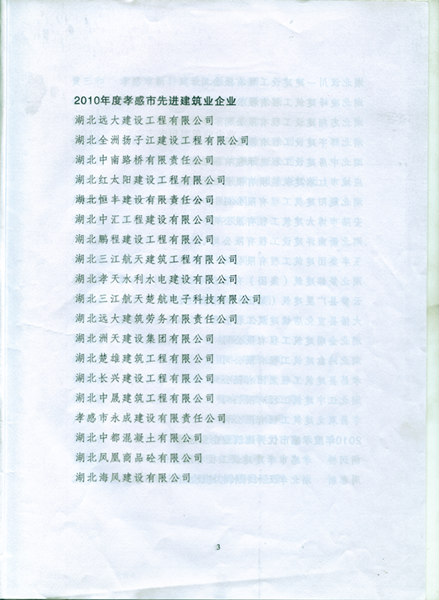 2010年度孝感市先进建筑业企业
湖北远大建设工程有限公司
湖北全洲扬子江建设工程有限公司
湖北中南路桥有限责任公司
湖北红太阳建设工程有限公司
湖北恒丰建设有限责任公司
湖北中汇工程建设有限公司
湖北鹏程建设工程有限公司
湖北三江航天建筑工程有限公司
湖北孝天水利水电建设有限公司
湖北三江航天楚航电子科技有限公司
湖北远大建筑劳务有限责任公司
湖北洲天建设集团有限公司
湖北楚雄建筑工程有限公司
湖北长兴建设工程有限公司
湖北中晟建筑工程有限公司
孝感市永成建设有限责任公司
湖北中都混凝土有限公司
湖北凤凰商品砼有限公司
湖北海风建设有限公司
3